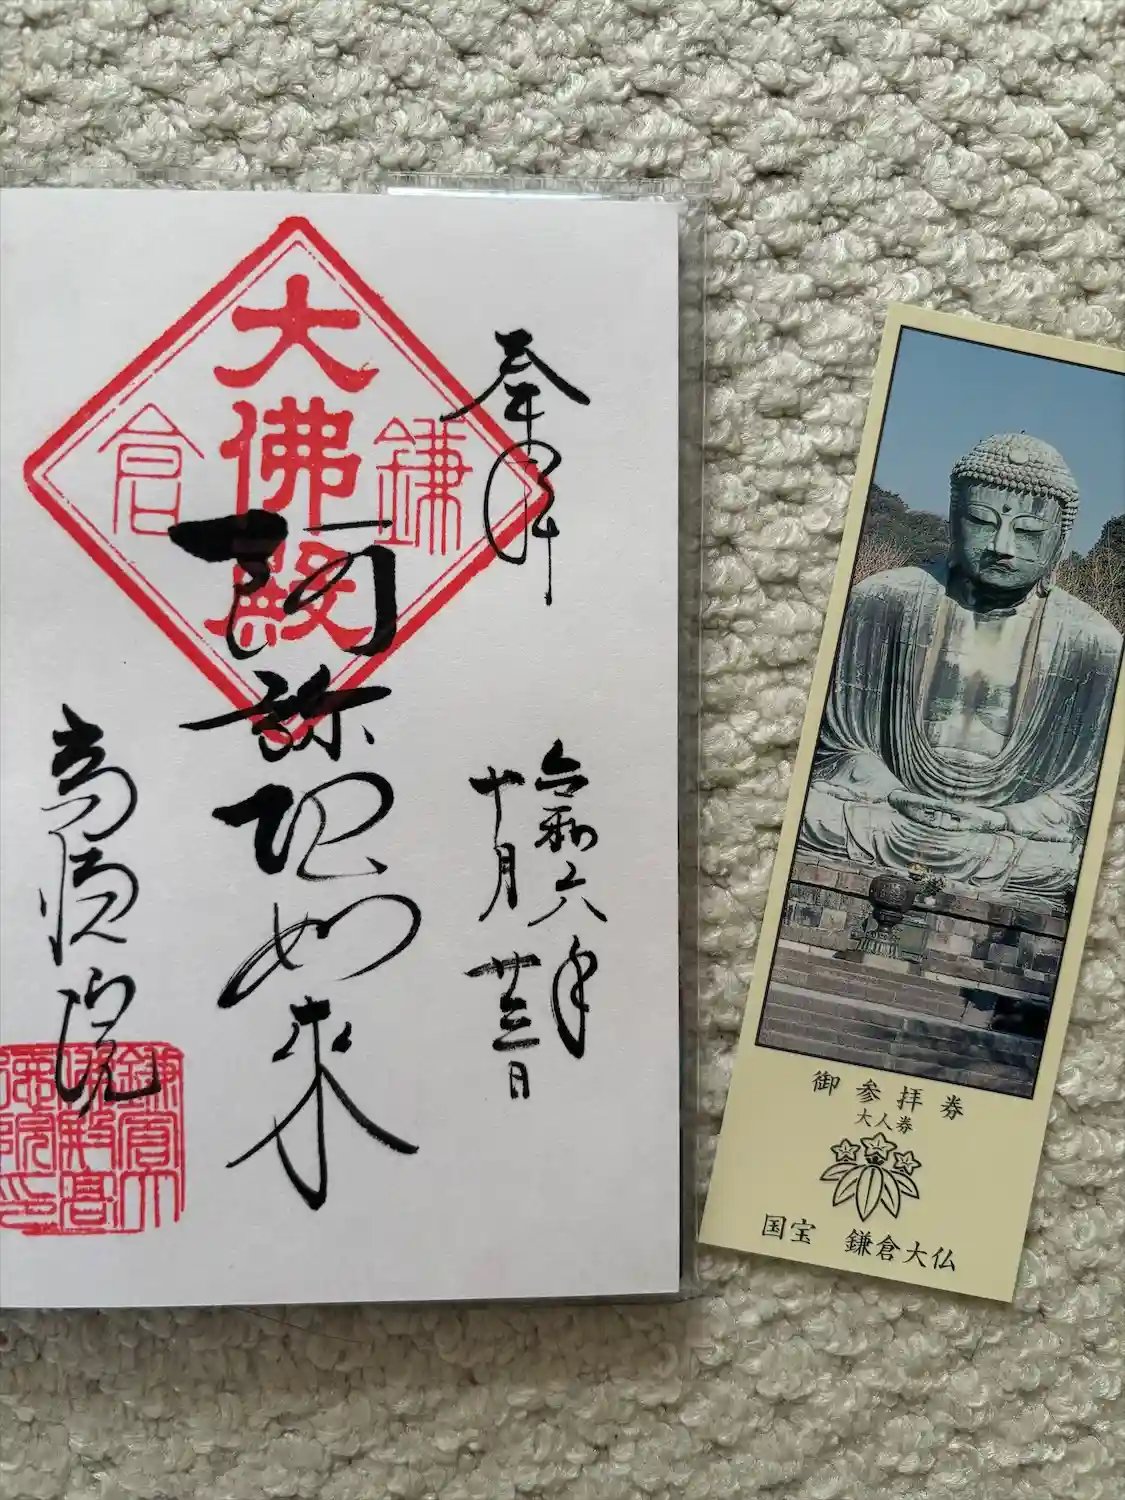 奉拝
令和六年
十月廿三日
大佛殿
鎌倉
阿弥陀如来
高徳院
御参拝券
大人券
国宝 鎌倉大仏